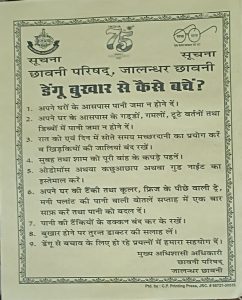 75
सूचना
सूचना
छावनी परिषद्, जालन्धर छावनी
डेंगू बुखार से कैसे बचें?
1. अपने घरों के आसपास पानी जमा न होने दें।
2. अपने घर के आसपास के गड्ढों, गमलों, टूटे बर्तनों तथा
डिब्बों में पानी जमा न होने दें।
3. रात को एवं दिन में सोते समय मच्छरदानी का प्रयोग करें
व खिड़कियों की जालियां बंद रखें।
4. सुबह तथा शाम को पूरी बांह के कपड़े पहनें।
5. ओडोमॉस अथवा कछुआछाप अथवा गुड नाईट का
इस्तेमाल करें।
6. अपने घर की टैंकी तथा कूलर, फ्रिज के पीछे वाली ट्रे,
मनी प्लांट की पानी वाली बोतलें सप्ताह में एक बार
साफ़ करें तथा पानी को बदल दें।
7. पानी की टैंकियों के ढक्कन बंद कर के रखें।
8. बुखार होने पर तुरन्त डाक्टर की सलाह लें।
9. डेंगू से बचाव के लिए हो रहे प्रयत्नों में हमारा सहयोग दें।
मुख्य अधिशासी अधिकारी
छावनी परिषद्
जालन्धर छावनी
Ptd. by : C.P. Printing Press, JRC.